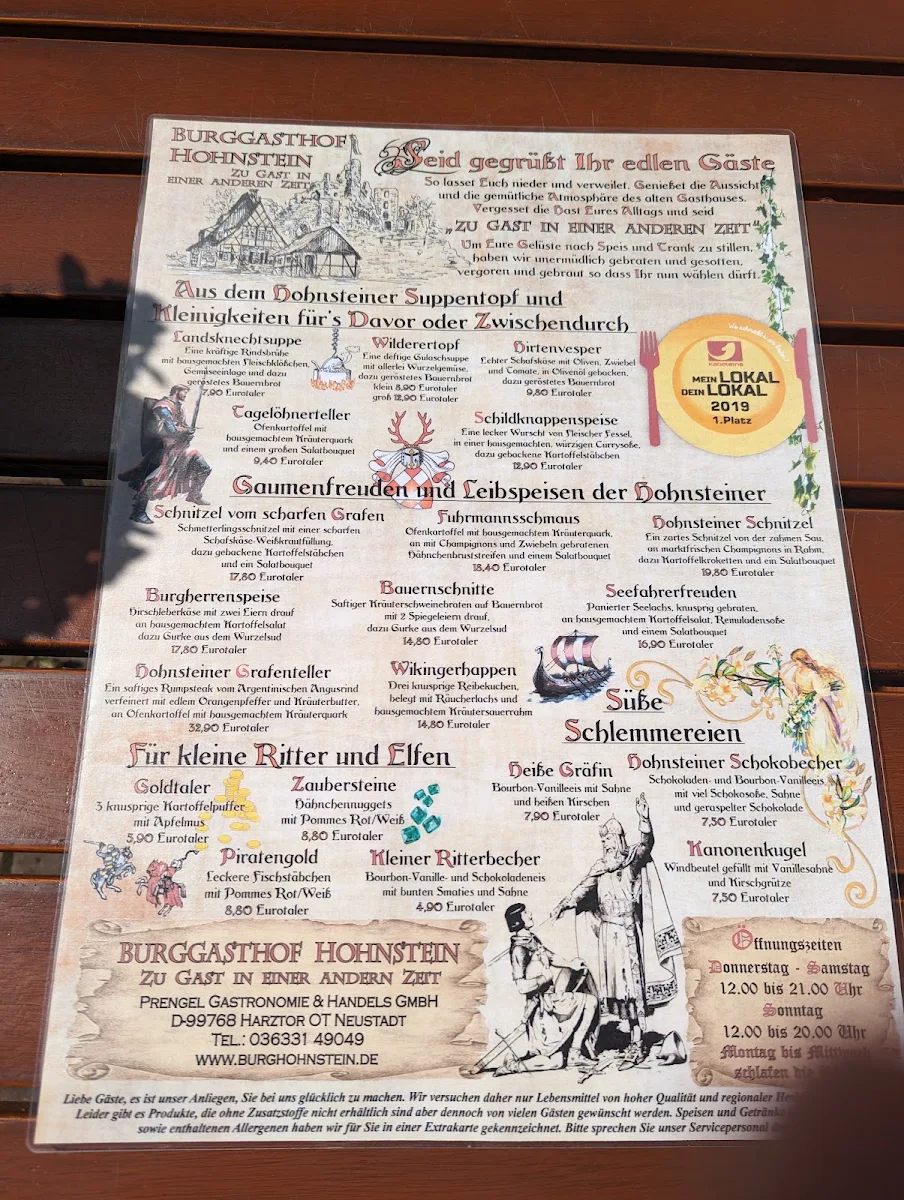 BURGGASTHOF
HOHNSTEIN
ZU GAST IN
EINER ANDEREN ZEIT
Seid gegrüßt Ihr edlen Gäste
So lasset Euch nieder und verweilet. Genießet die Aussicht
und die gemütliche Atmosphäre des alten Gasthauses.
Vergesset die Hast Eures Alltags und seid
„ZU GAST IN EINER ANDEREN ZEIT"
Um Eure Gelüste nach Speis und Trank zu stillen,
haben wir unermüdlich gebraten und gesotten,
vergoren und gebraut so dass Ihr nun wählen dürft.
Aus dem Hohnsteiner Suppentopf und
Kleinigkeiten für's Davor oder Zwischendurch
Landsknechtsuppe
Eine kräftige Rindsbrühe
mit hausgemachten Fleischklößchen,
Gemüseeinlage und dazu
geröstetes Bauernbrot
7,90 Eurotaler
Wilderertopf
Eine deftige Gulaschsuppe
mit allerlei Wurzelgemüse,
dazu geröstetes Bauernbrot
klein 8,90 Eurotaler
groß 12,90 Eurotaler
Hirtenvesper
Echter Schafskäse mit Oliven, Zwiebel
und Tomate, in Olivenöl gebacken,
dazu geröstetes Bauernbrot
9,80 Eurotaler
MEIN LOKAL
DEIN LOKAL
2019
1.Platz
Tagelöhnerteller
Ofenkartoffel mit
hausgemachtem Kräuterquark
und einem großen Salatbouquet
9,40 Eurotaler
Schildknappenspeise
Eine lecker Wurscht von Fleischer Fessel,
in einer hausgemachten, würzigen Currysoße,
dazu gebackene Kartoffelstäbchen
12,90 Eurotaler
Gaumenfreuden und Leibspeisen der Hohnsteiner
Schnitzel vom scharfen Grafen
Schmetterlingsschnitzel mit einer scharfen
Schafskäse-Weißkrautfüllung,
dazu gebackene Kartoffelstäbchen
und ein Salatbouquet
17,80 Eurotaler
Fuhrmannsschmaus
Ofenkartoffel mit hausgemachtem Kräuterquark,
an mit Champignons und Zwiebeln gebratenen
Hähnchenbruststreifen und einem Salatbouquet
18,40 Eurotaler
Hohnsteiner Schnitzel
Ein zartes Schnitzel von der zahmen Sau,
an marktfrischen Champignons in Rahm,
dazu Kartoffelkroketten und ein Salatbouquet
19,80 Eurotaler
Burgherrenspeise
Hirschleberkäse mit zwei Eiern drauf
an hausgemachtem Kartoffelsalat
dazu Gurke aus dem Wurzelsud
17,80 Eurotaler
Bauernschnitte
Saftiger Kräuterschweinebraten auf Bauernbrot
mit 2 Spiegeleiern drauf,
dazu Gurke aus dem Wurzelsud
14,80 Eurotaler
Seefahrerfreuden
Panierter Seelachs, knusprig gebraten,
an hausgemachtem Kartoffelsalat, Remuladensoße
und einem Salatbouquet
16,90 Eurotaler
Hohnsteiner Grafenteller
Ein saftiges Rumpsteak vom Argentinischen Angusrind
verfeinert mit edlem Orangenpfeffer und Kräuterbutter,
an Ofenkartoffel mit hausgemachtem Kräuterquark
32,90 Eurotaler
Wikingerhappen
Drei knusprige Reibekuchen,
belegt mit Räucherlachs und
hausgemachtem Kräutersauerrahm
14,80 Eurotaler
Süße
Schlemmereien
Für kleine Ritter und Elfen
Goldtaler
3 knusprige Kartoffelpuffer
mit Apfelmus
5,90 Eurotaler
Zaubersteine
Hähnchennuggets
mit Pommes Rot/Weiß
8,80 Eurotaler
Heiße Gräfin
Bourbon-Vanilleeis mit Sahne
und heißen Kirschen
7,90 Eurotaler
Hohnsteiner Schokobecher
Schokoladen- und Bourbon-Vanilleeis
mit viel Schokosoße, Sahne
und geraspelter Schokolade
7,50 Eurotaler
Piratengold
Leckere Fischstäbchen
mit Pommes Rot/Weiß
8,80 Eurotaler
Kleiner Ritterbecher
Bourbon-Vanille- und Schokoladeneis
mit bunten Smaties und Sahne
4,90 Eurotaler
Kanonenkugel
Windbeutel gefüllt mit Vanillesahne
und Kirschgrütze
7,50 Eurotaler
BURGGASTHOF HOHNSTEIN
ZU GAST IN EINER ANDERN ZEIT
PRENGEL GASTRONOMIE & HANDELS GMBH
D-99768 HARZTOR OT NEUSTADT
TEL.: 036331 49049
WWW.BURGHOHNSTEIN.DE
Öffnungszeiten
Donnerstag - Samstag
12.00 bis 21.00 Uhr
Sonntag
12.00 bis 20.00 Uhr
Montag bis
schlafen
Liebe Gäste, es ist unser Anliegen, Sie bei uns glücklich zu machen. Wir versuchen daher nur Lebensmittel von hoher Qualität und regionaler
Leider gibt es Produkte, die ohne Zusatzstoffe nicht erhältlich sind aber dennoch von vielen Gästen gewünscht werden. Speisen und
sowie enthaltenen Allergenen haben wir für Sie in einer Extrakarte gekennzeichnet. Bitte sprechen Sie unser Servicepersonal